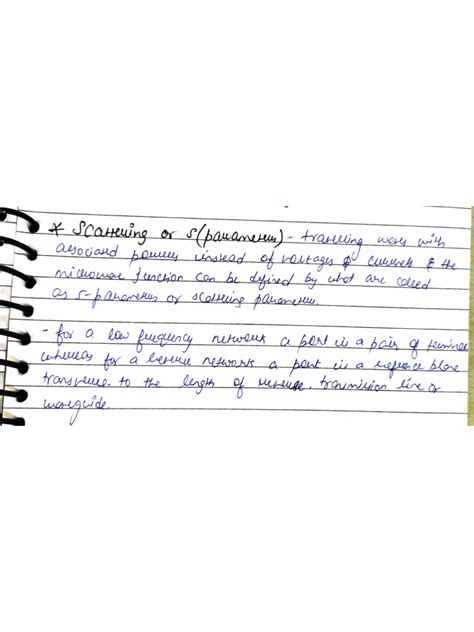 * Scattering or S(parameters) - travelling waves with
associated powers instead of voltages & currents & the
microwave junction can be defined by what are called
as s-parameters or scattering parameters.
- for a low frequency network a port is a pair of terminals
whereas for a network a port is a reference plane
transverse to the length of transmission line or
waveguide.